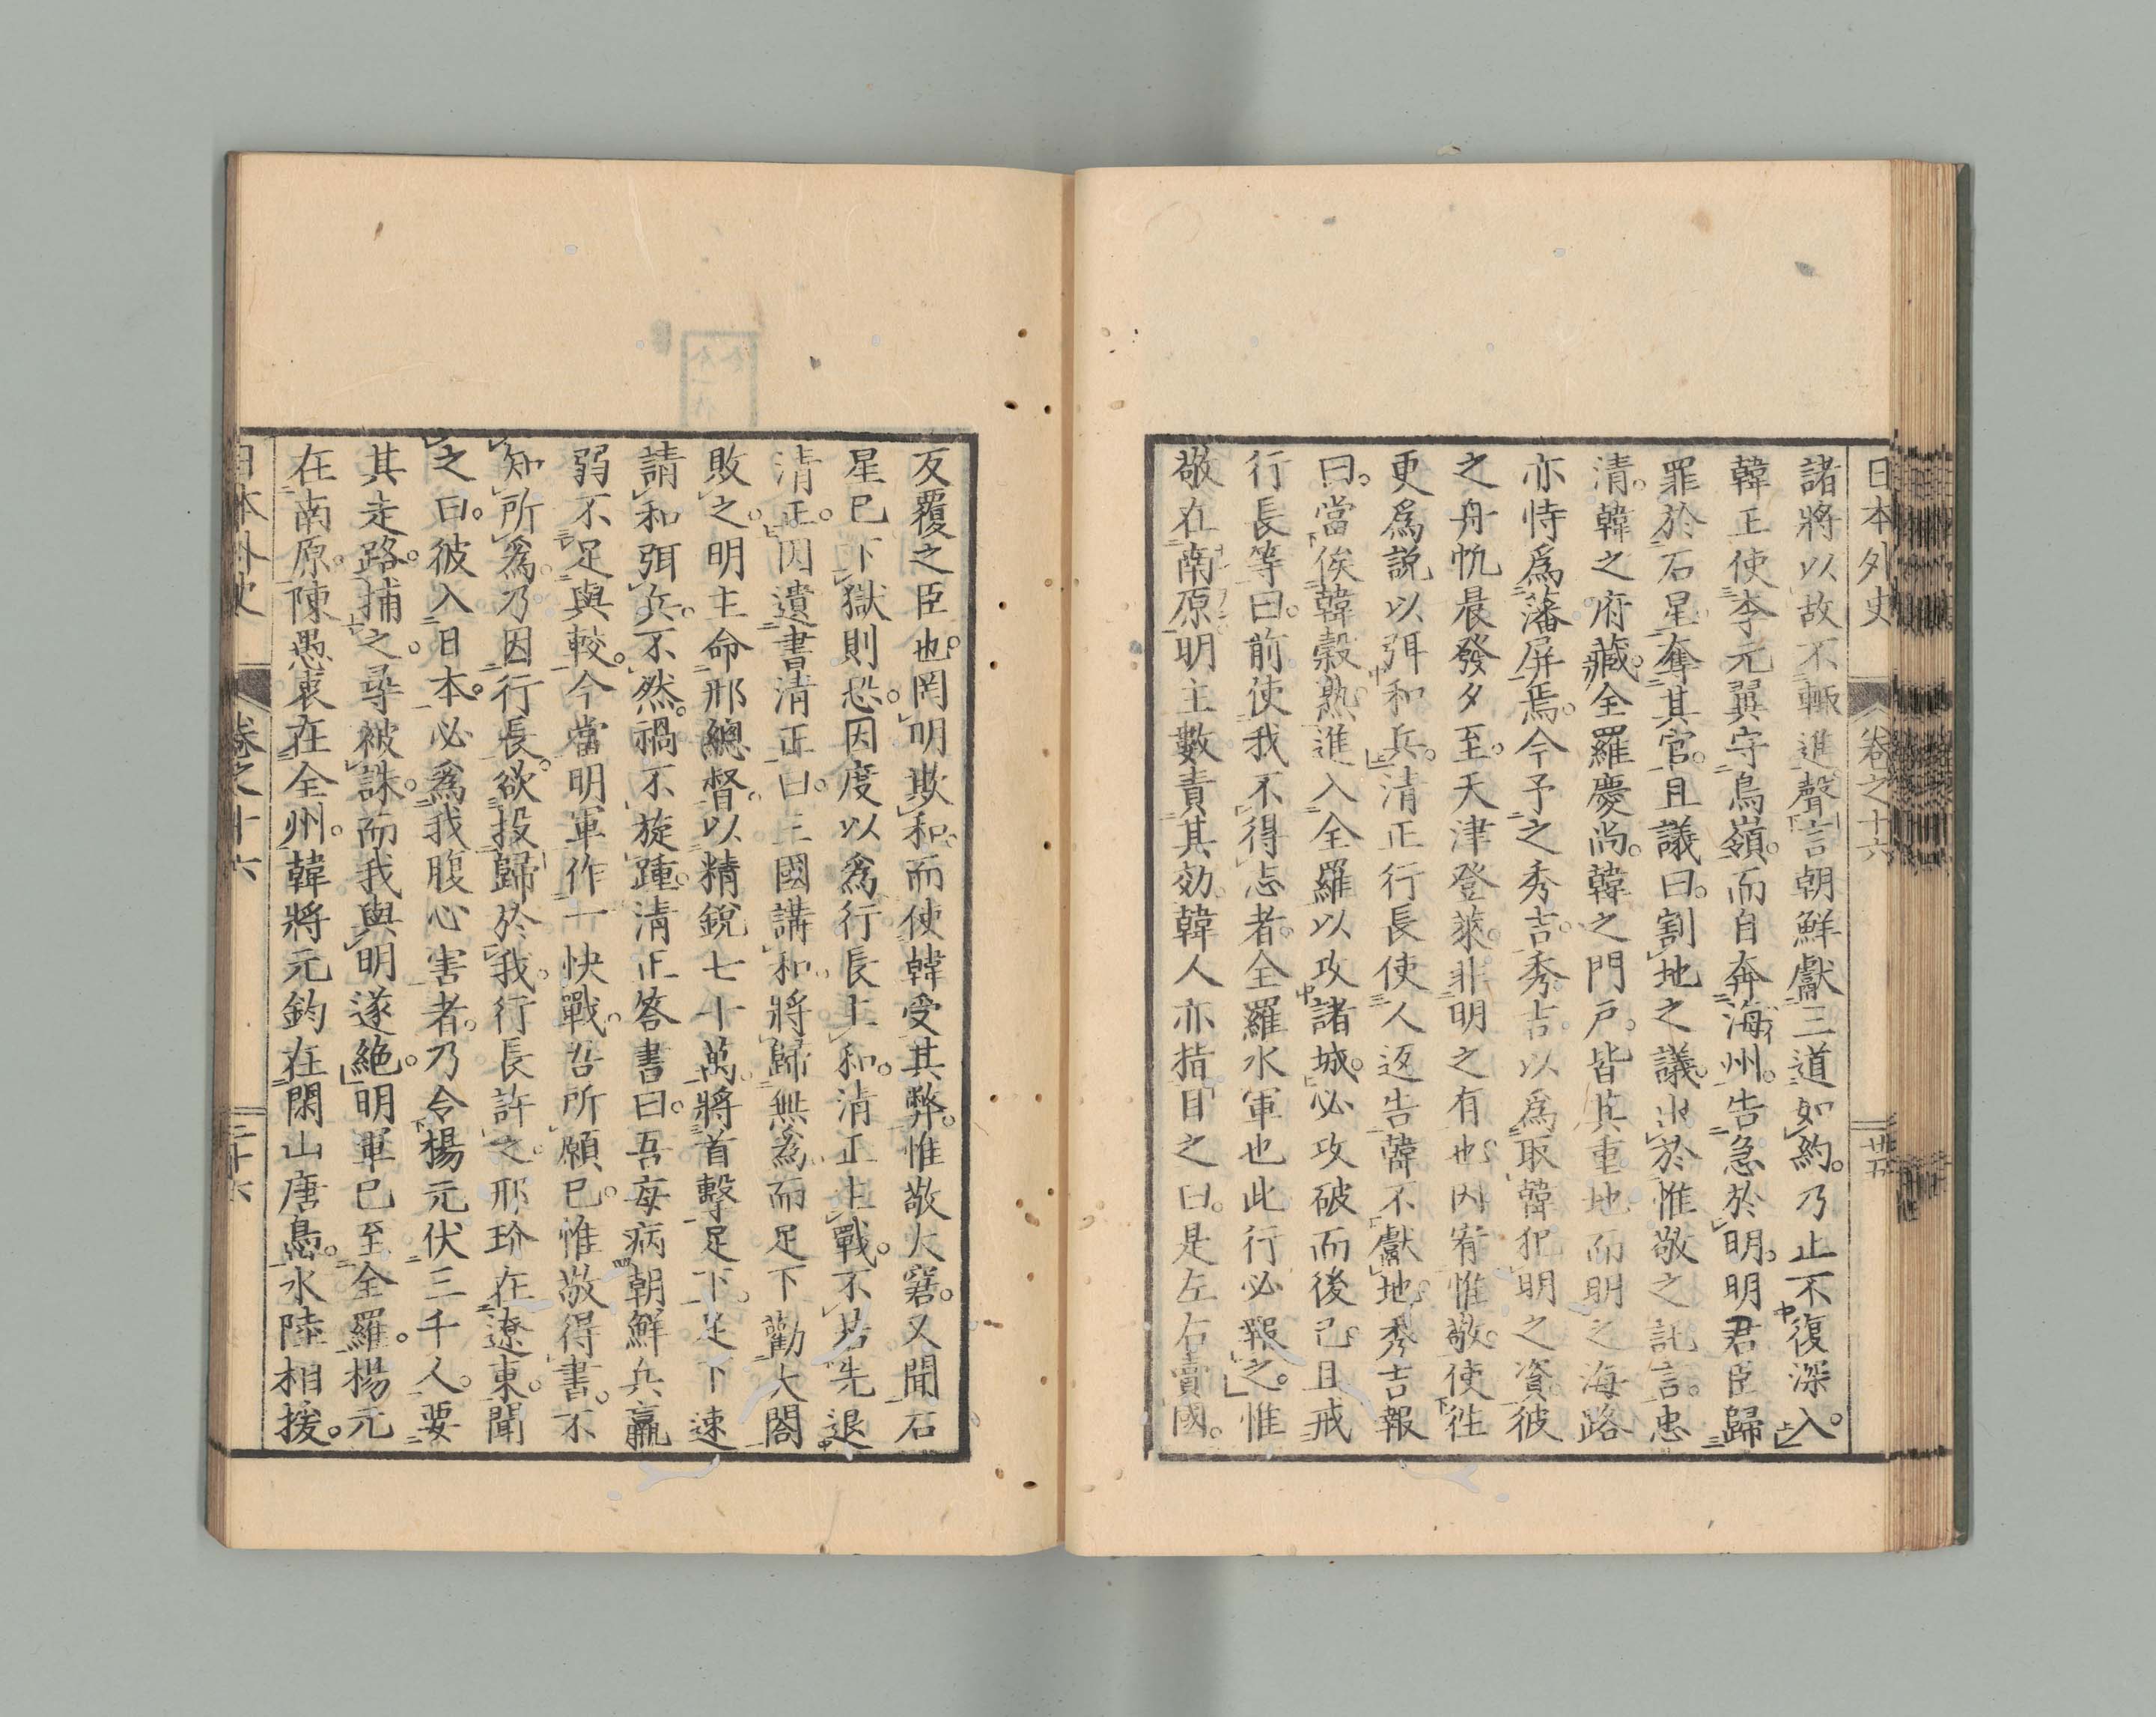 日本外史 卷之十六 廿五
諸將以故不輙進聲言朝鮮獻三道如約。乃止不復深入。
韓正使李元翼守鳥嶺。而自奔海州。告急於明。明君臣歸
罪於石星奪其官。且議曰。割地之議。出於惟敬之訛言。忠
清。韓之府藏。全羅慶尚。韓之門戸。皆其重地而明之海路
亦恃爲藩屏焉。今予之秀吉。秀吉以爲取韓犯明之資。彼
之舟帆晨發夕至。天津登萊。非明之有也。因宥惟敬。使徃
更爲説以弭和兵。清正行長使人返告韓不獻地。秀吉報
曰。當俟韓穀熟。進入全羅以攻諸城。必攻破而後已。且戒
行長等曰。前使我不得志者。全羅水軍也此行必報之。惟
敬在南原明主數責其効。韓人亦指目之曰。是左右賣國。
反覆之臣也。罔明欺和。而使韓受其弊。惟敬大窘。又聞石
星已下獄則恐。因度以爲行長主和。清正主戰。不若先退
清正。因遺書清正曰。三國講和。將歸無爲。而足下勸大閤
敗之。明主命邢總督。以精銳七十萬。將首擊足下。足下速
請和弭兵。不然。禍不旋踵。清正答書曰。吾每病朝鮮兵羸
弱不足與較。今當明軍作一快戰。吾所願已。惟敬得書。不
知所爲。乃因行長。欲投歸於我。行長許之。邢玠在遼東。聞
之曰。彼入日本。必爲我腹心害者。乃令楊元伏三千人。要
其走路。捕之。尋被誅。而我與明遂絶。明軍已至全羅。楊元
在南原。陳愚衷在全州。韓將元鈞在閑山唐島。水陸相援。
日本外史 卷之十六 二十六